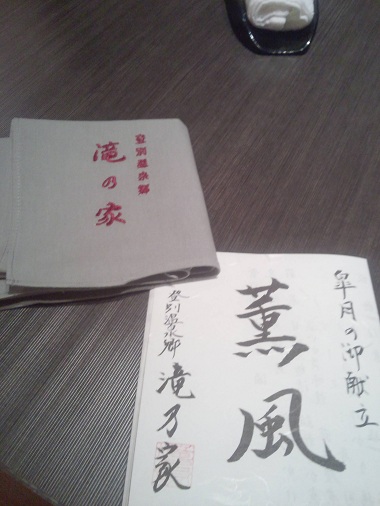 登別温泉郷
滝の家
皐月の御献立
薫風
登別温泉郷 滝乃家